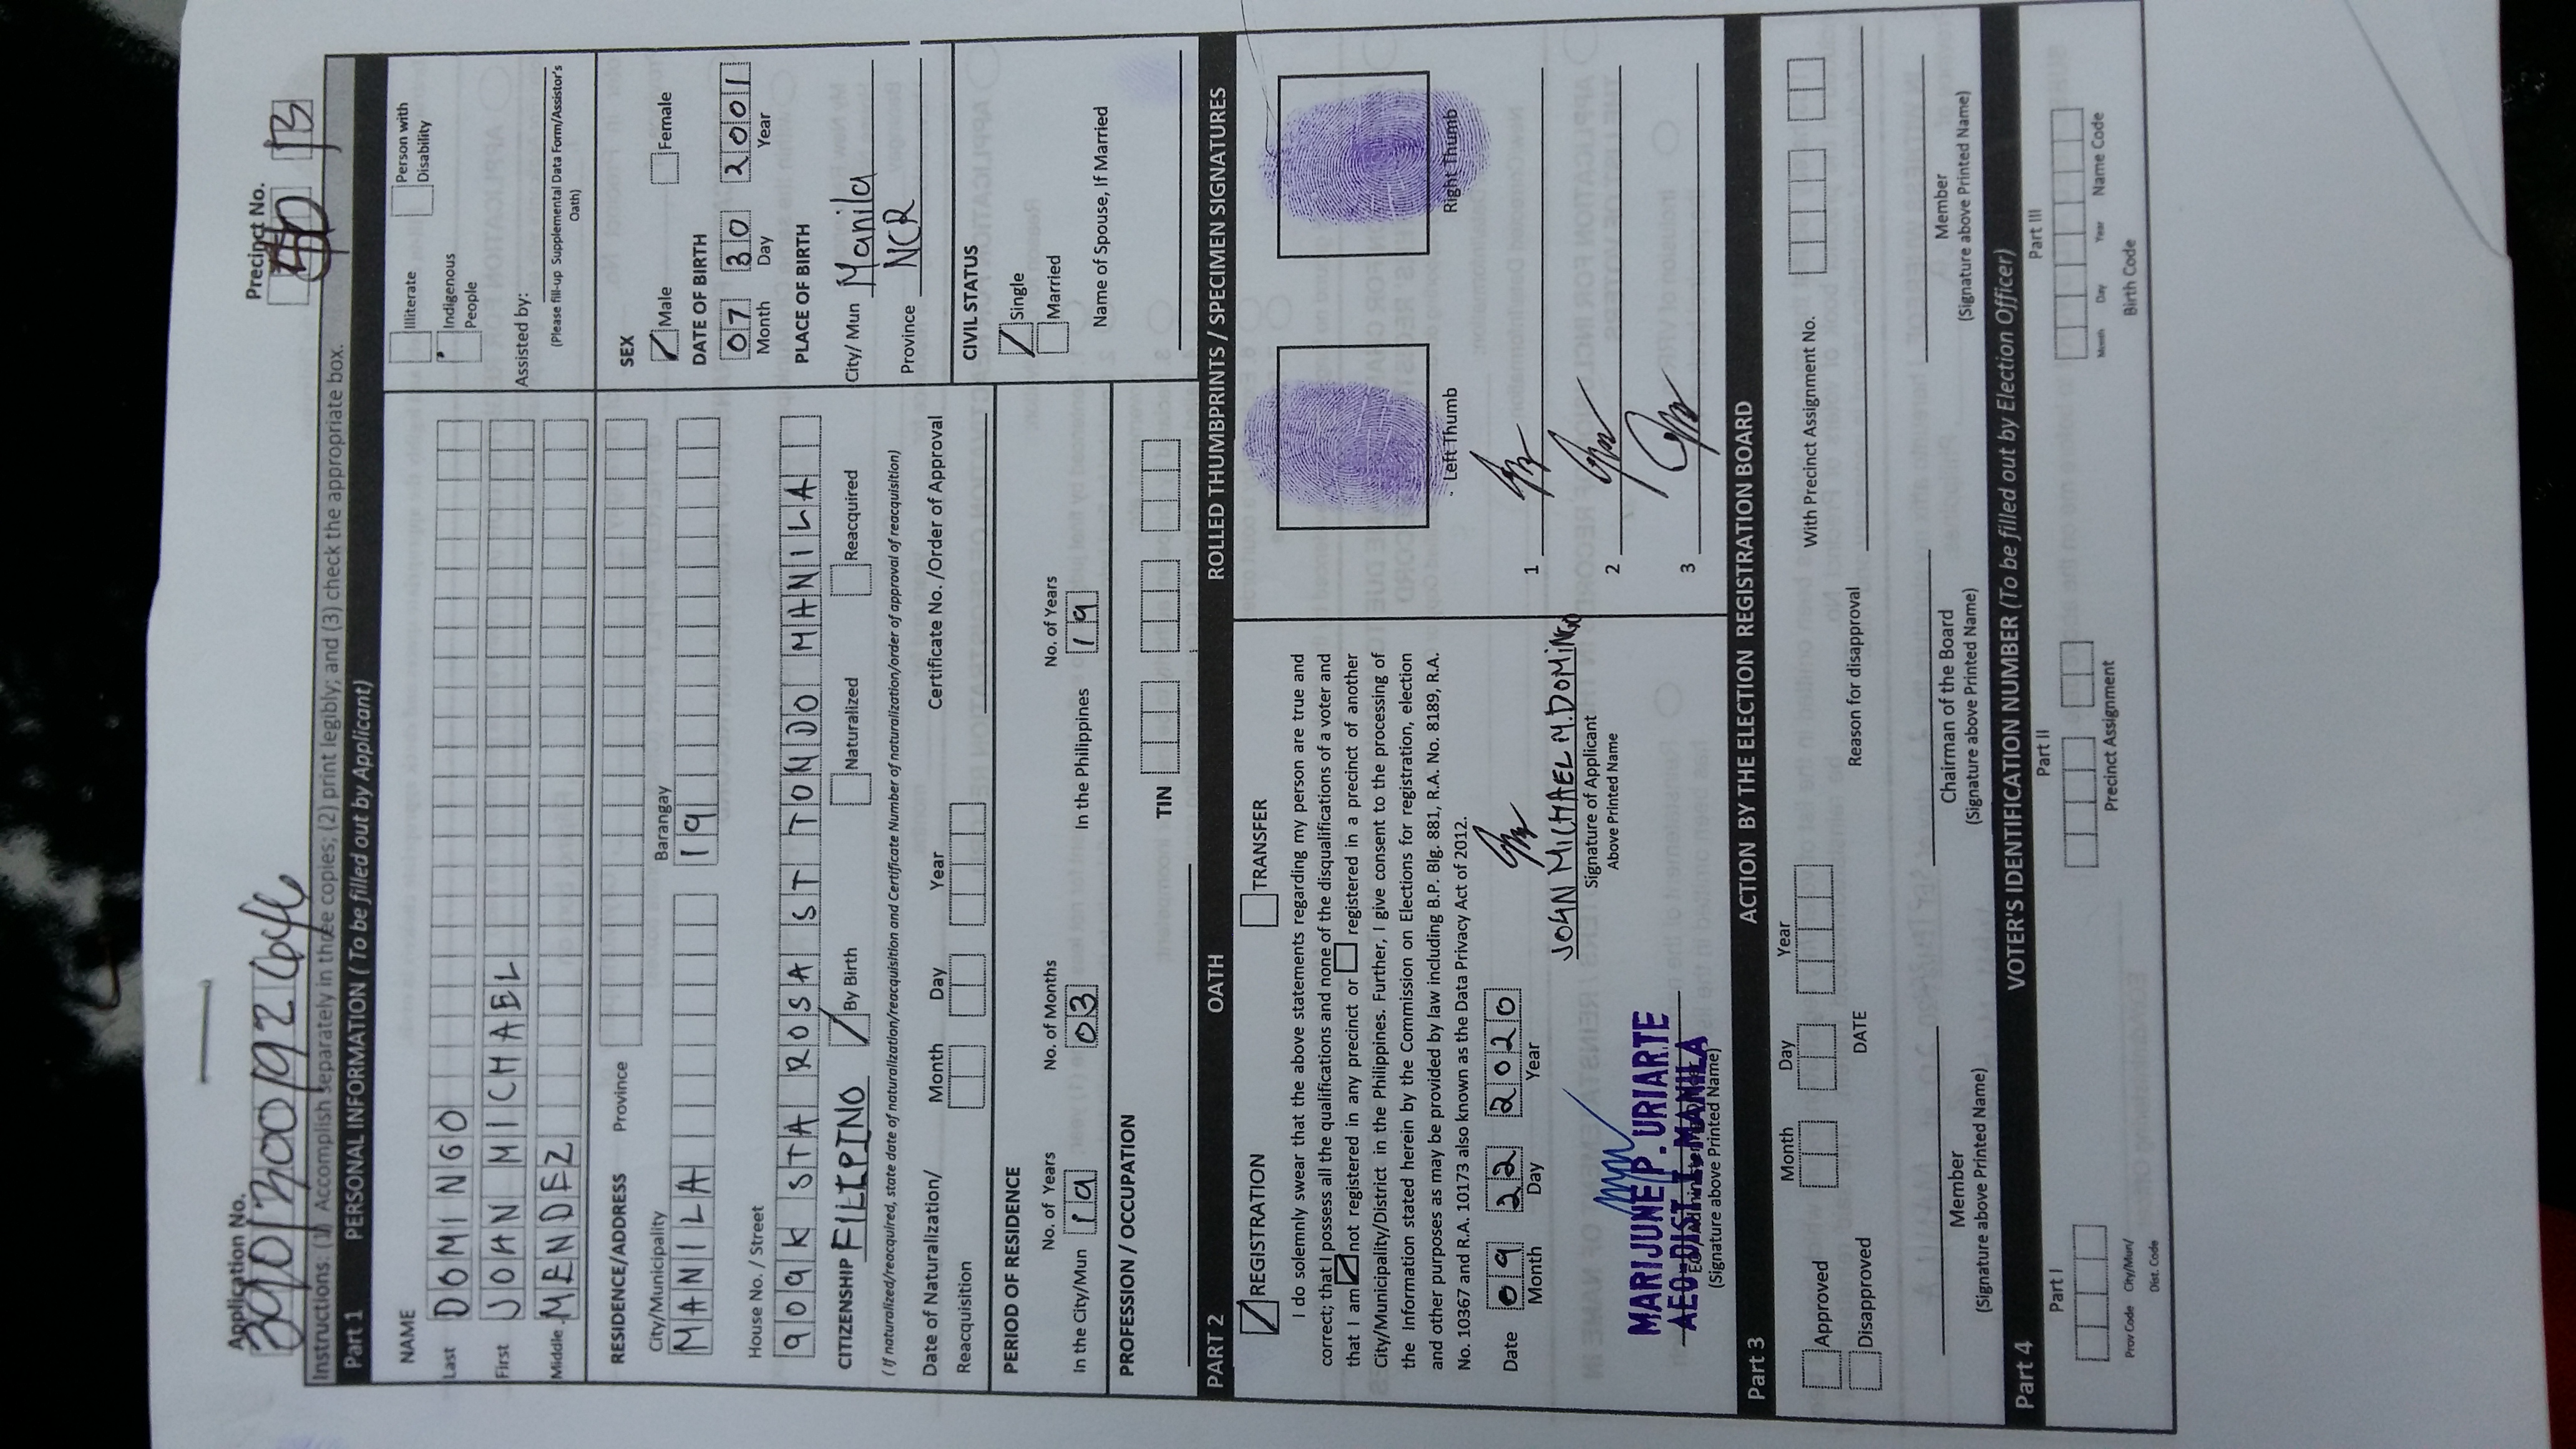 Application No.
Precinct No.
390130019264
B
Instructions: (1) Accomplish separately in three copies; (2) print legibly; and (3) check the appropriate box.
Part 1 PERSONAL INFORMATION ( To be filled out by Applicant)
NAME
Last DOMINGO
First JOHN MICHAEL
Middle MENDEZ
Illiterate
Person with Disability
Indigenous People
Assisted by:
(Please fill-up Supplemental Data Form/Assistor's Oath)
RESIDENCE/ADDRESS Province
City/Municipality Barangay
MANILA 19
House No. / Street
909K STA ROSA ST TONDO MANILA
SEX
Male Female
DATE OF BIRTH
07 30 2001
Month Day Year
PLACE OF BIRTH
City/ Mun Manila
Province NCR
CITIZENSHIP FILIPINO By Birth Naturalized Reacquired
( If naturalized/reacquired, state date of naturalization/reacquisition and Certificate Number of naturalization/order of approval of reacquisition)
Date of Naturalization/ Month Day Year Certificate No. /Order of Approval
Reacquisition
CIVIL STATUS
Single
Married
Name of Spouse, If Married
PERIOD OF RESIDENCE
No. of Years No. of Months No. of Years
In the City/Mun 19 03 In the Philippines 19
PROFESSION / OCCUPATION
TIN
PART 2 OATH ROLLED THUMBPRINTS / SPECIMEN SIGNATURES
REGISTRATION TRANSFER
I do solemnly swear that the above statements regarding my person are true and
correct; that I possess all the qualifications and none of the disqualifications of a voter and
that I am not registered in any precinct or registered in a precinct of another
City/Municipality/District in the Philippines. Further, I give consent to the processing of
the Information stated herein by the Commission on Elections for registration, election
and other purposes as may be provided by law including B.P. Blg. 881, R.A. No. 8189, R.A.
No. 10367 and R.A. 10173 also known as the Data Privacy Act of 2012.
Left Thumb Right Thumb
Date 09 22 2020
Month Day Year
JOHN MICHAEL M. DOMINGO
Signature of Applicant
Above Printed Name
1
2
3
MARIJUNE P. URIARTE
AEO-DIST. I. MANILA
(Signature above Printed Name)
Part 3 ACTION BY THE ELECTION REGISTRATION BOARD
Month Day Year
Approved
With Precinct Assignment No.
Disapproved DATE Reason for disapproval
Member Chairman of the Board Member
(Signature above Printed Name) (Signature above Printed Name) (Signature above Printed Name)
Part 4 VOTER'S IDENTIFICATION NUMBER (To be filled out by Election Officer)
Part I Part II Part III
Prov Code City/Mun/ Dist. Code
Precinct Assignment
Month Day Year Name Code
Birth Code